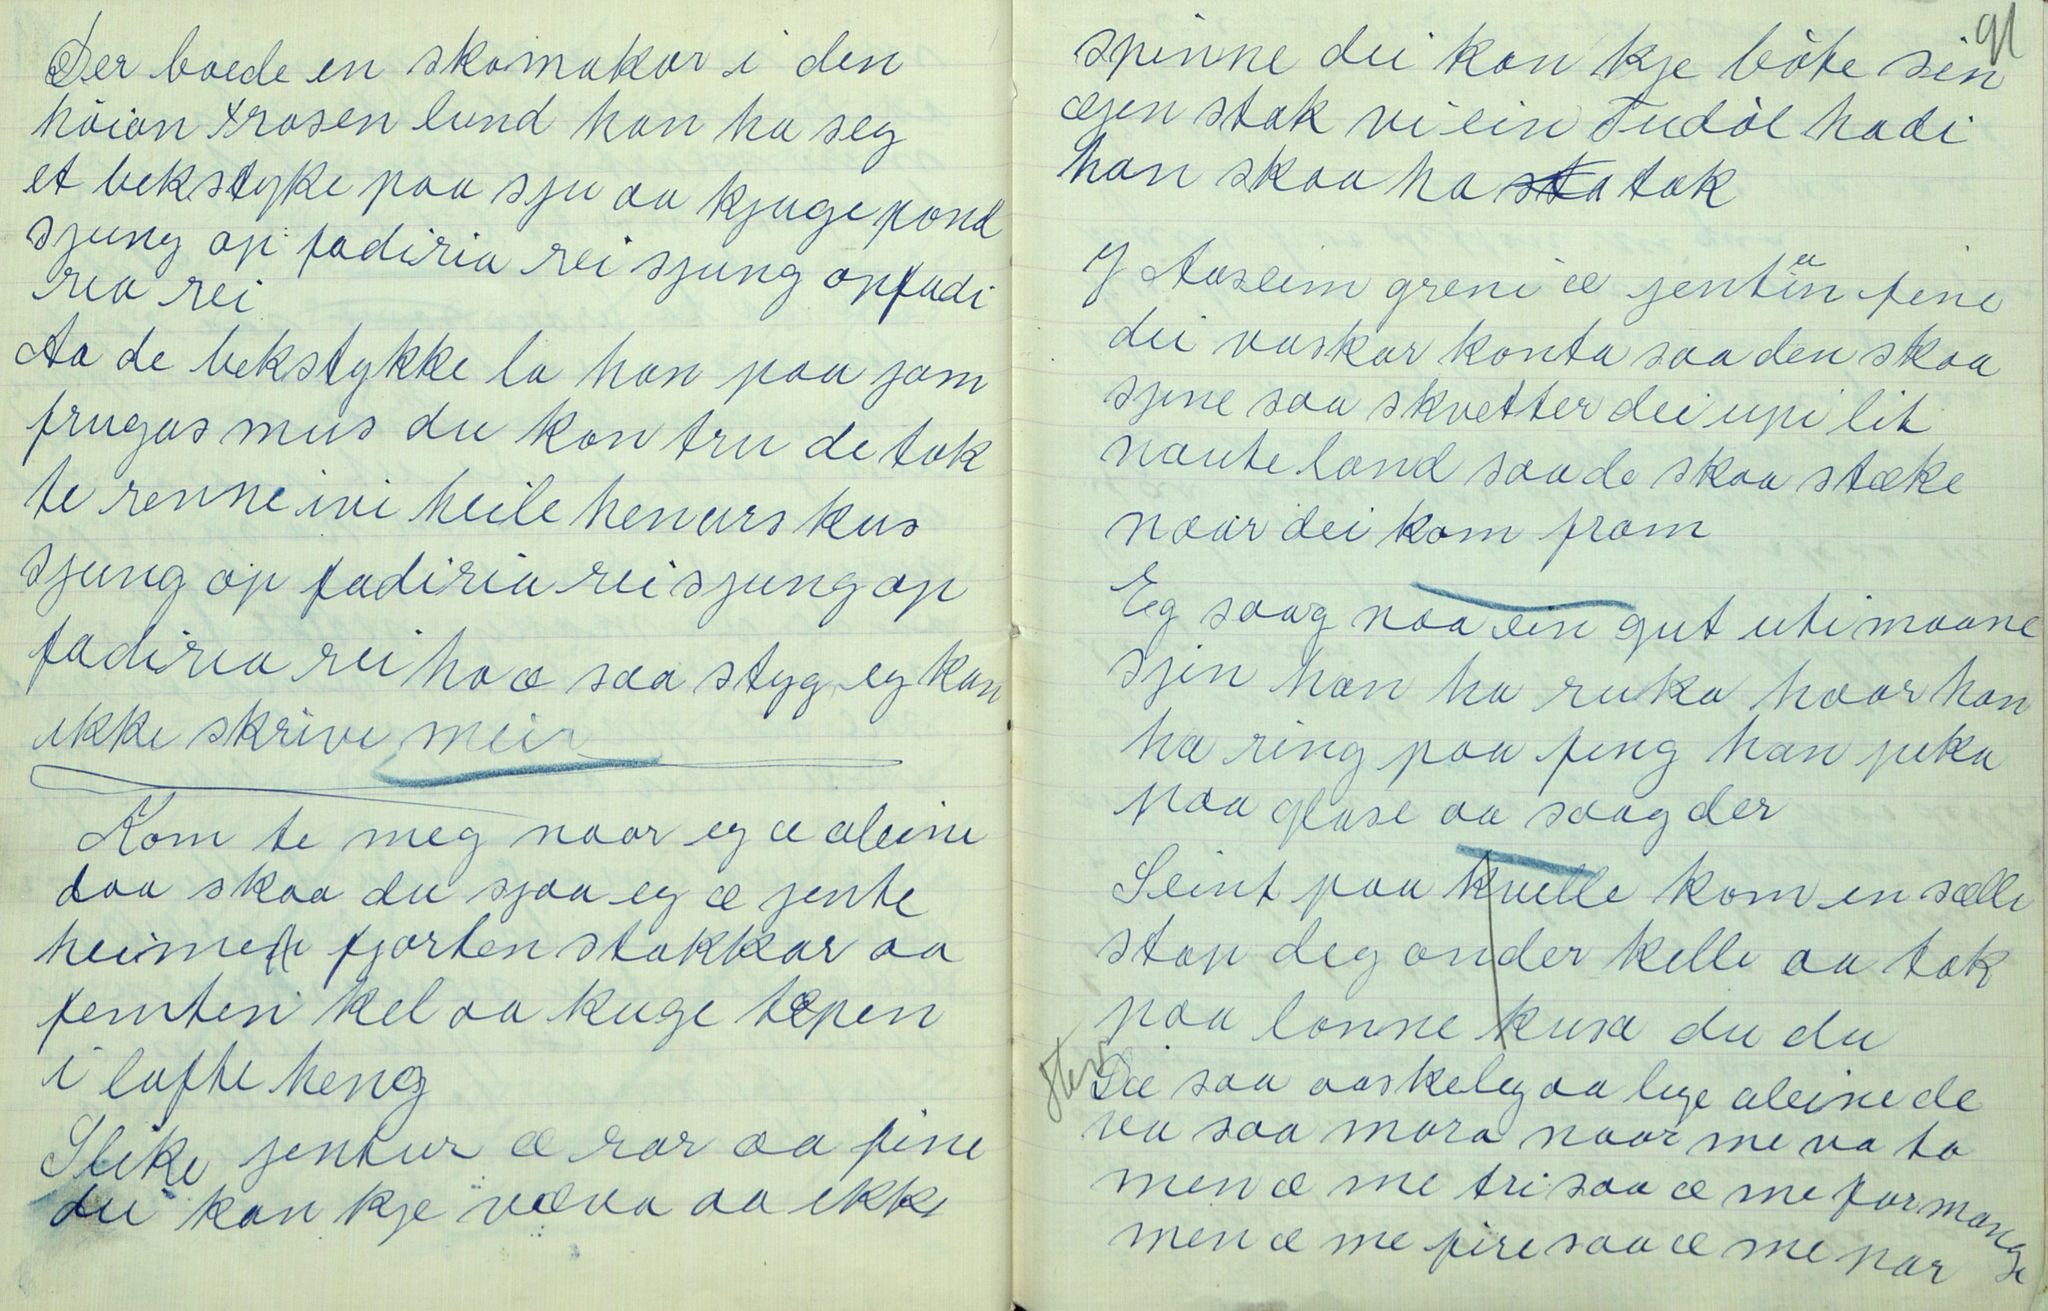 Der boede en skomakar i den
höian xrosen lund han ha seg
et bekstyke paa sju aa kjuge pond
sjung op fadiria rei sjung op fadi
ria rei
Aa de bekstykke la han paa jom
frugas mus du kan tru de tok
te renne ivi heile henars kus
sjung op fadiria rei sjung op
fadiria rei ha æ saa styg eg kan
ikke skrive meir
Kom te meg naar eg æ aleine
daa skaa du sjaa eg æ jente
heime fjorten stakkar aa
femten kel aa kuge tæpen
i lufte heng
Slike jentur æ rar aa fine
dei kan kje væva aa ikke
91
spinne dei kan kje böte sin
æjen stak vi ein Tudöl hadi
han skaa ha tak
I Aasleim greni æ jentin ea fine
dei vaskar konta saa den skaa
sjine saa skvetter dei upi lit
naute land saa de skaa stæke
naar dei kom fram
Eg saag naa ein gut uti maane
sjin han ha ruka haar han
ha ring paa fing han peka
paa glase aa saag der
Seint paa kvelle kom en sælle
stap deg onder kelle aa tak
paa lonne kusa du du
De saa aaskeleg aa lige aleine de
va saa mora naar me va to
men æ me tri saa æ me for mange
men æ me fire saa æ me par